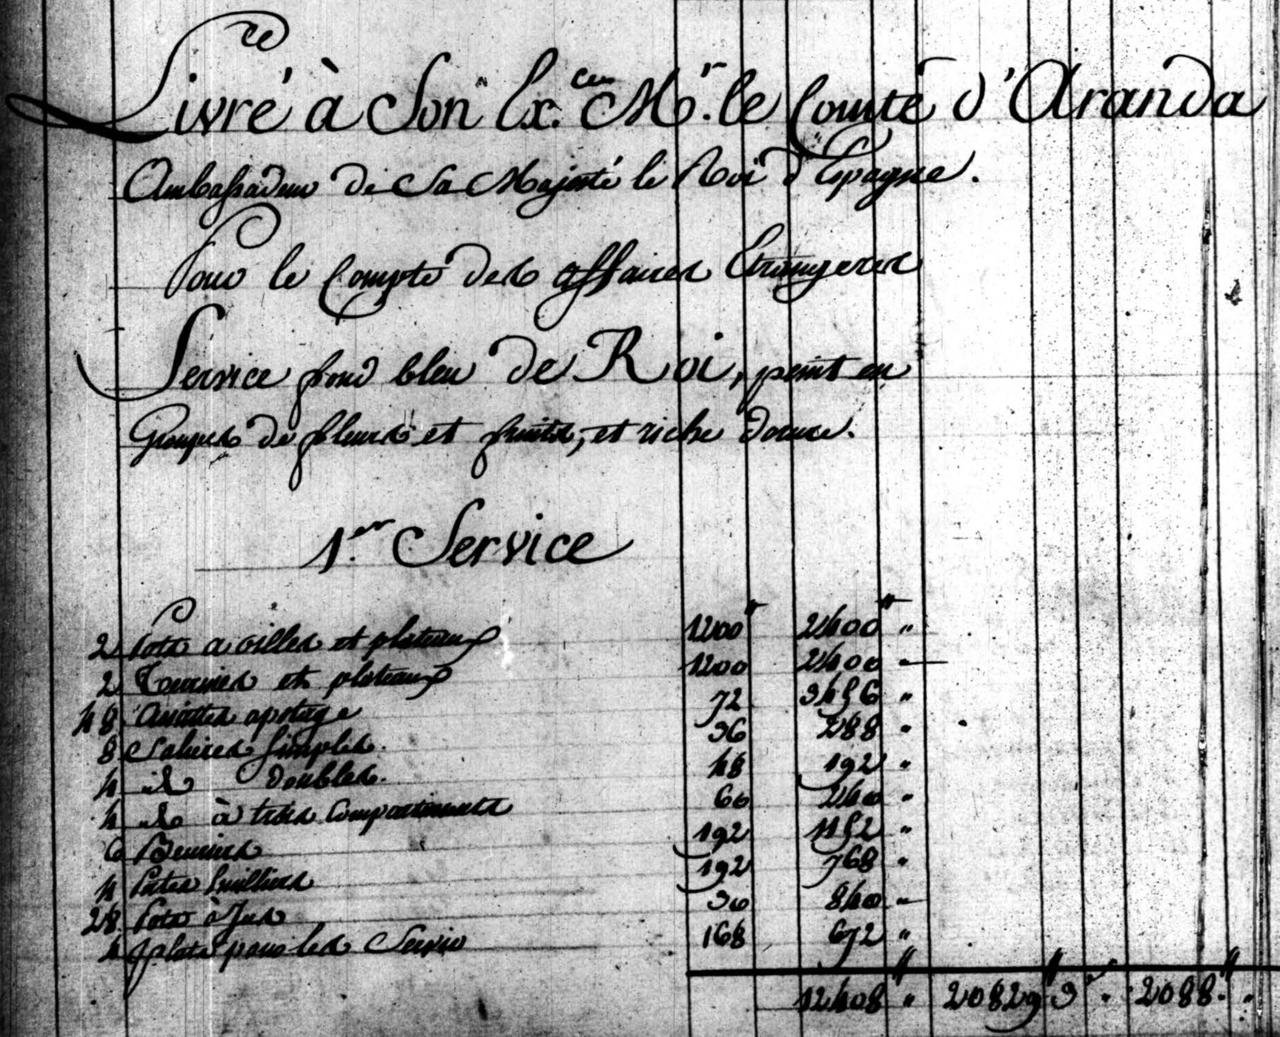 Livré à Son Ex.cen Mr. le Comte d'Aranda
Ambassadeur de Sa Majesté le Roi d'Espagne.
Pour le Compte des affaires Etrangeres
Service fond bleu de Roi, peint en
Groupes de fleurs et fruits, et riche dorure.
1.er Service
2 Pots a oilles et plateaux 1200 2400 "
2 Terrines et plateaux 1200 2400 "
48 Assiettes apotage 72 3456 "
8 Salieres simples. 36 288 "
4 id doubles. 48 192 "
4 id à trois compartiments 60 240 "
6 Beuriers 192 1152 "
4 Portes huilliers 192 768 "
28 Pots à Jus 30 840 "
4 plats pour les Servir 168 672 "
12408 " 20829 3 " 2088 "